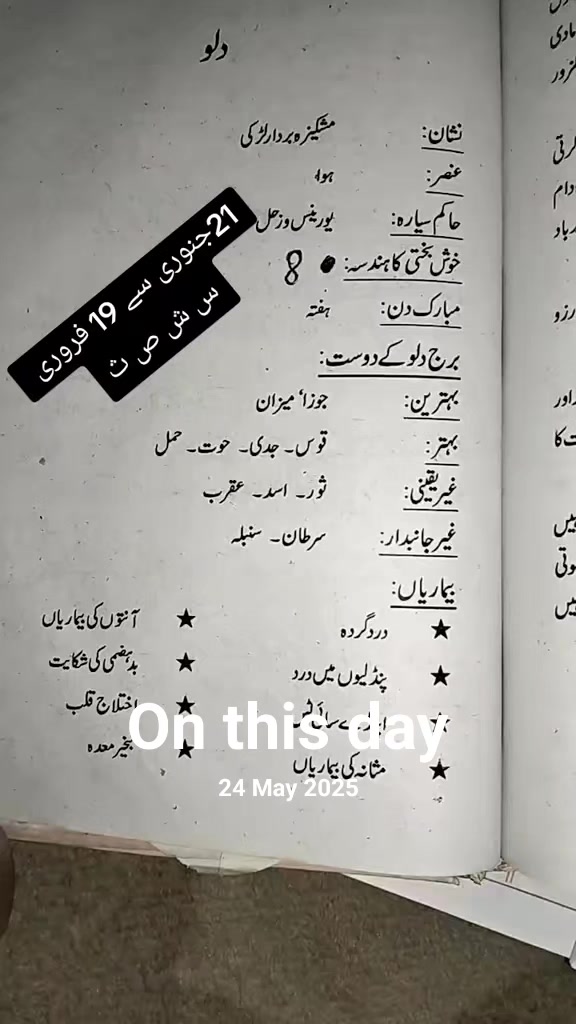 دلو
نشان: مشکیزہ بردار لڑکی
عنصر: ہوا
حاکم سیارہ: یورینس وزحل
خوش بختی کا ہندسہ: 8
مبارک دن: ہفتہ
21 جنوری سے 19 فروری
س ش ص ث
برج دلو کے دوست:
بہترین: جوزا، میزان
بہتر: قوس۔ جدی۔ حوت۔ حمل
غیر یقینی: ثور۔ اسد۔ عقرب
غیر جانبدار: سرطان۔ سنبلہ
بیماریاں:
★ درد گردہ ★ آنتوں کی بیماریاں
★ پنڈلیوں میں درد ★ بدہضمی کی شکایت
★ ★ اختلاج قلب
★ مثانہ کی بیماریاں ★ تبخیر معدہ
On this day
24 May 2025